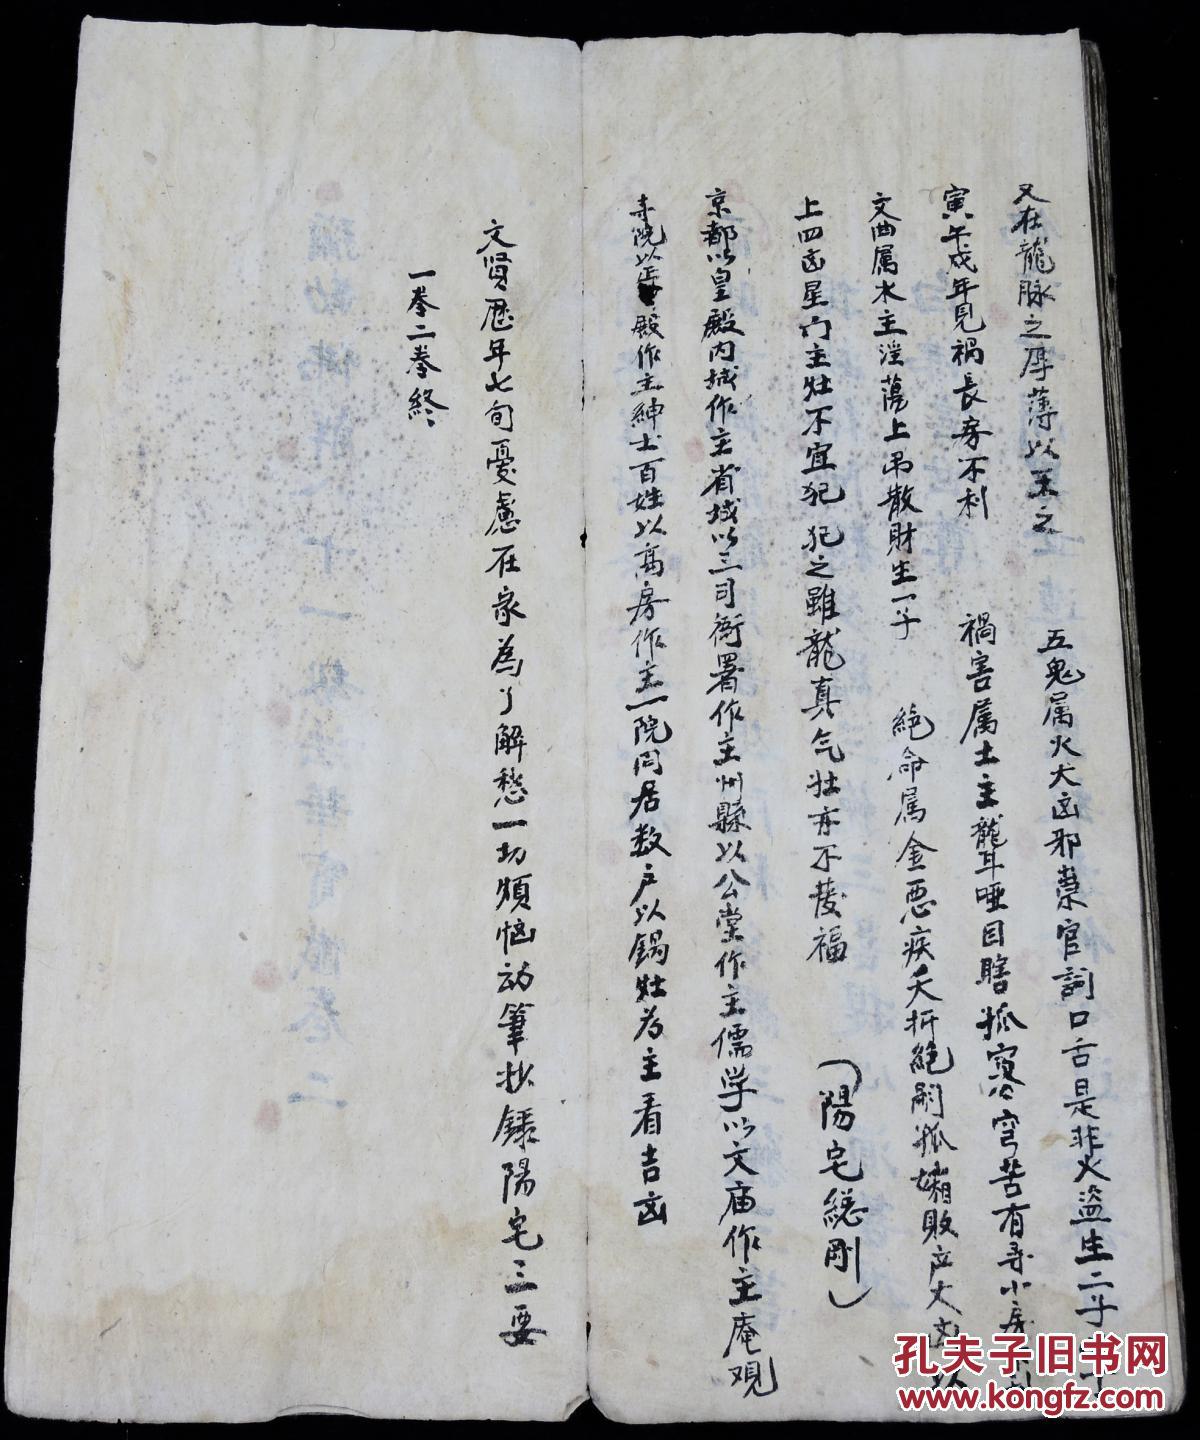 又在龍脉之厚薄以至之 五鬼属火大凶邪祟官詞口舌是非火盗生二子
寅午戌年見禍長房不利 禍害属土主龍耳哑目瞎孤寡穹苦有寿小房
文曲属水主滛蕩上吊散財生一子 絶命属金恶疾夭折絶嗣孤孀敗产大凶以
上四凶星门主灶不宜犯犯之雖龍真气壮亦不發福 （陽宅縂剛）
京都以皇殿内城作主省城以三司衙署作主州縣以公堂作主儒学以文庙作主庵观
寺院以正殿作主紳士百姓以高房作主一院同居数户以鍋灶为主看吉凶
文贤歷年七旬憂慮在家為了解愁一切煩恼动筆抄錄陽宅三要
一卷二卷終
孔夫子旧书网
www.kongfz.com